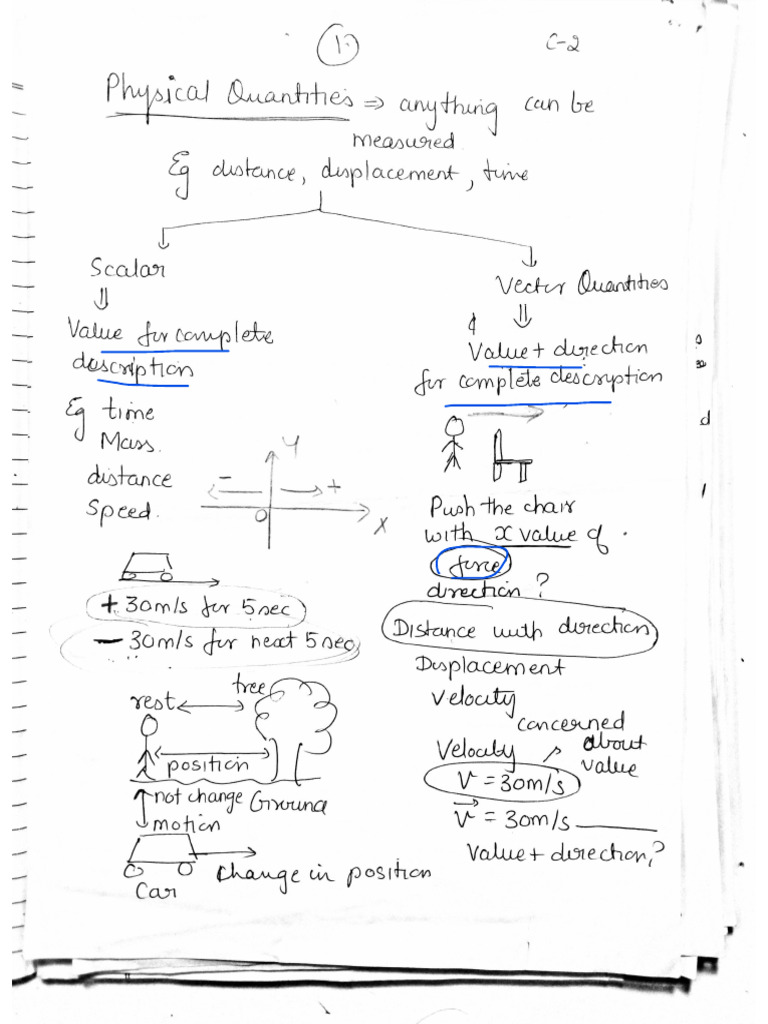 1.
C-2
Physical Quantities ⇒ anything can be
measured
Eg distance, displacement, time
Scalar
⇓
Value for complete
description
Eg time
Mass.
distance
Speed.
Vector Quantities
⇓
Value + direction
for complete description
Y
- +
O
X
Push the chair
with x value of
force
direction ?
+ 30m/s for 5sec
- 30m/s for next 5sec
Distance with direction
Displacement
Velocity
concerned
about
value
Velocity
V = 30m/s
V⃗ = 30m/s ______
Value + direction,?
tree
rest
position
not change Ground
motion
Car
Change in position
d